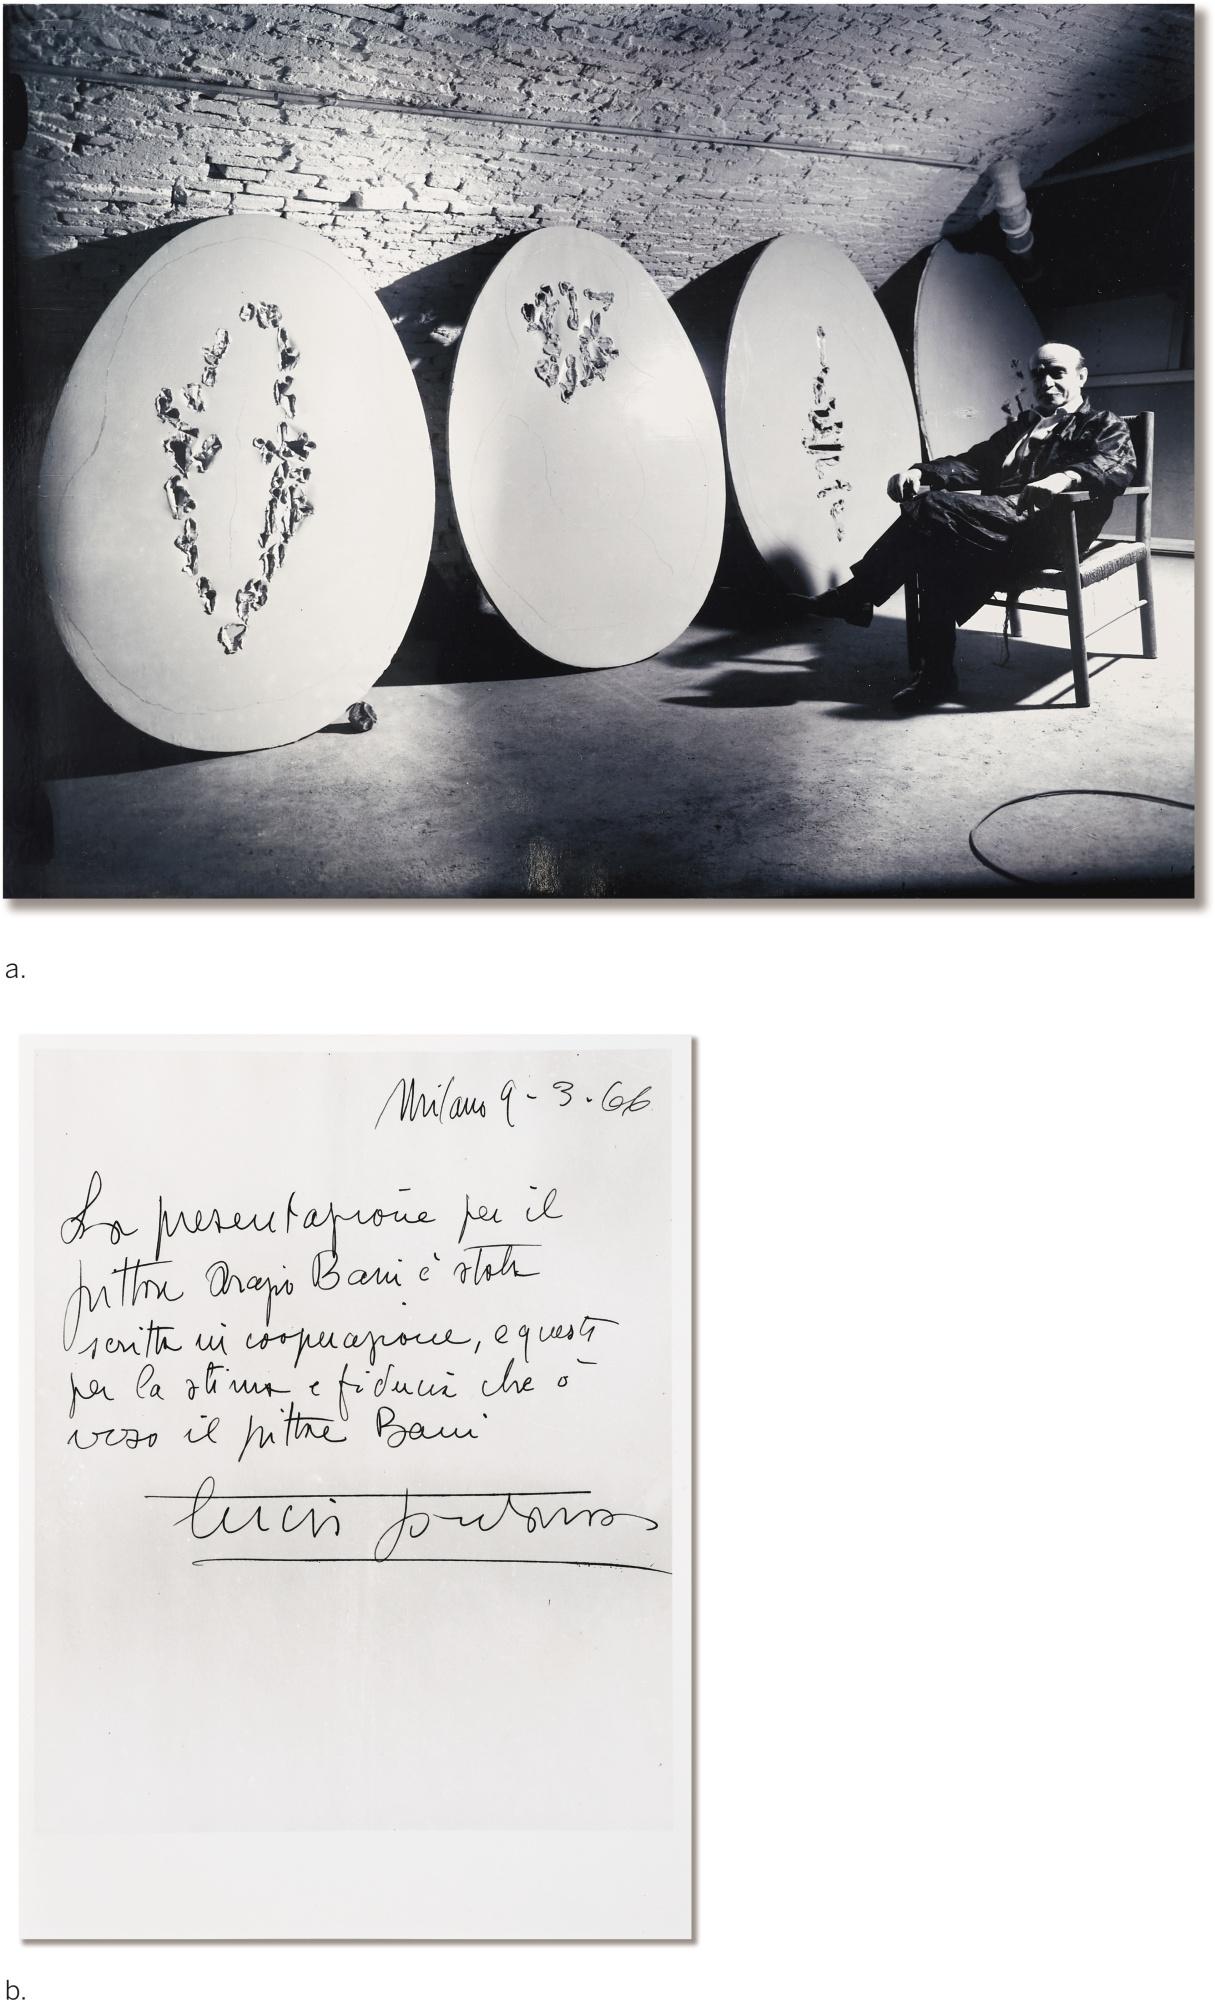 a.
Milano 9-3.66
La presentazione per il
pittore Orazio Bani è stata
scritta in cooperazione, e questo
per la stima e fiducia che ò
verso il pittore Bani
Lucio Fontana
b.